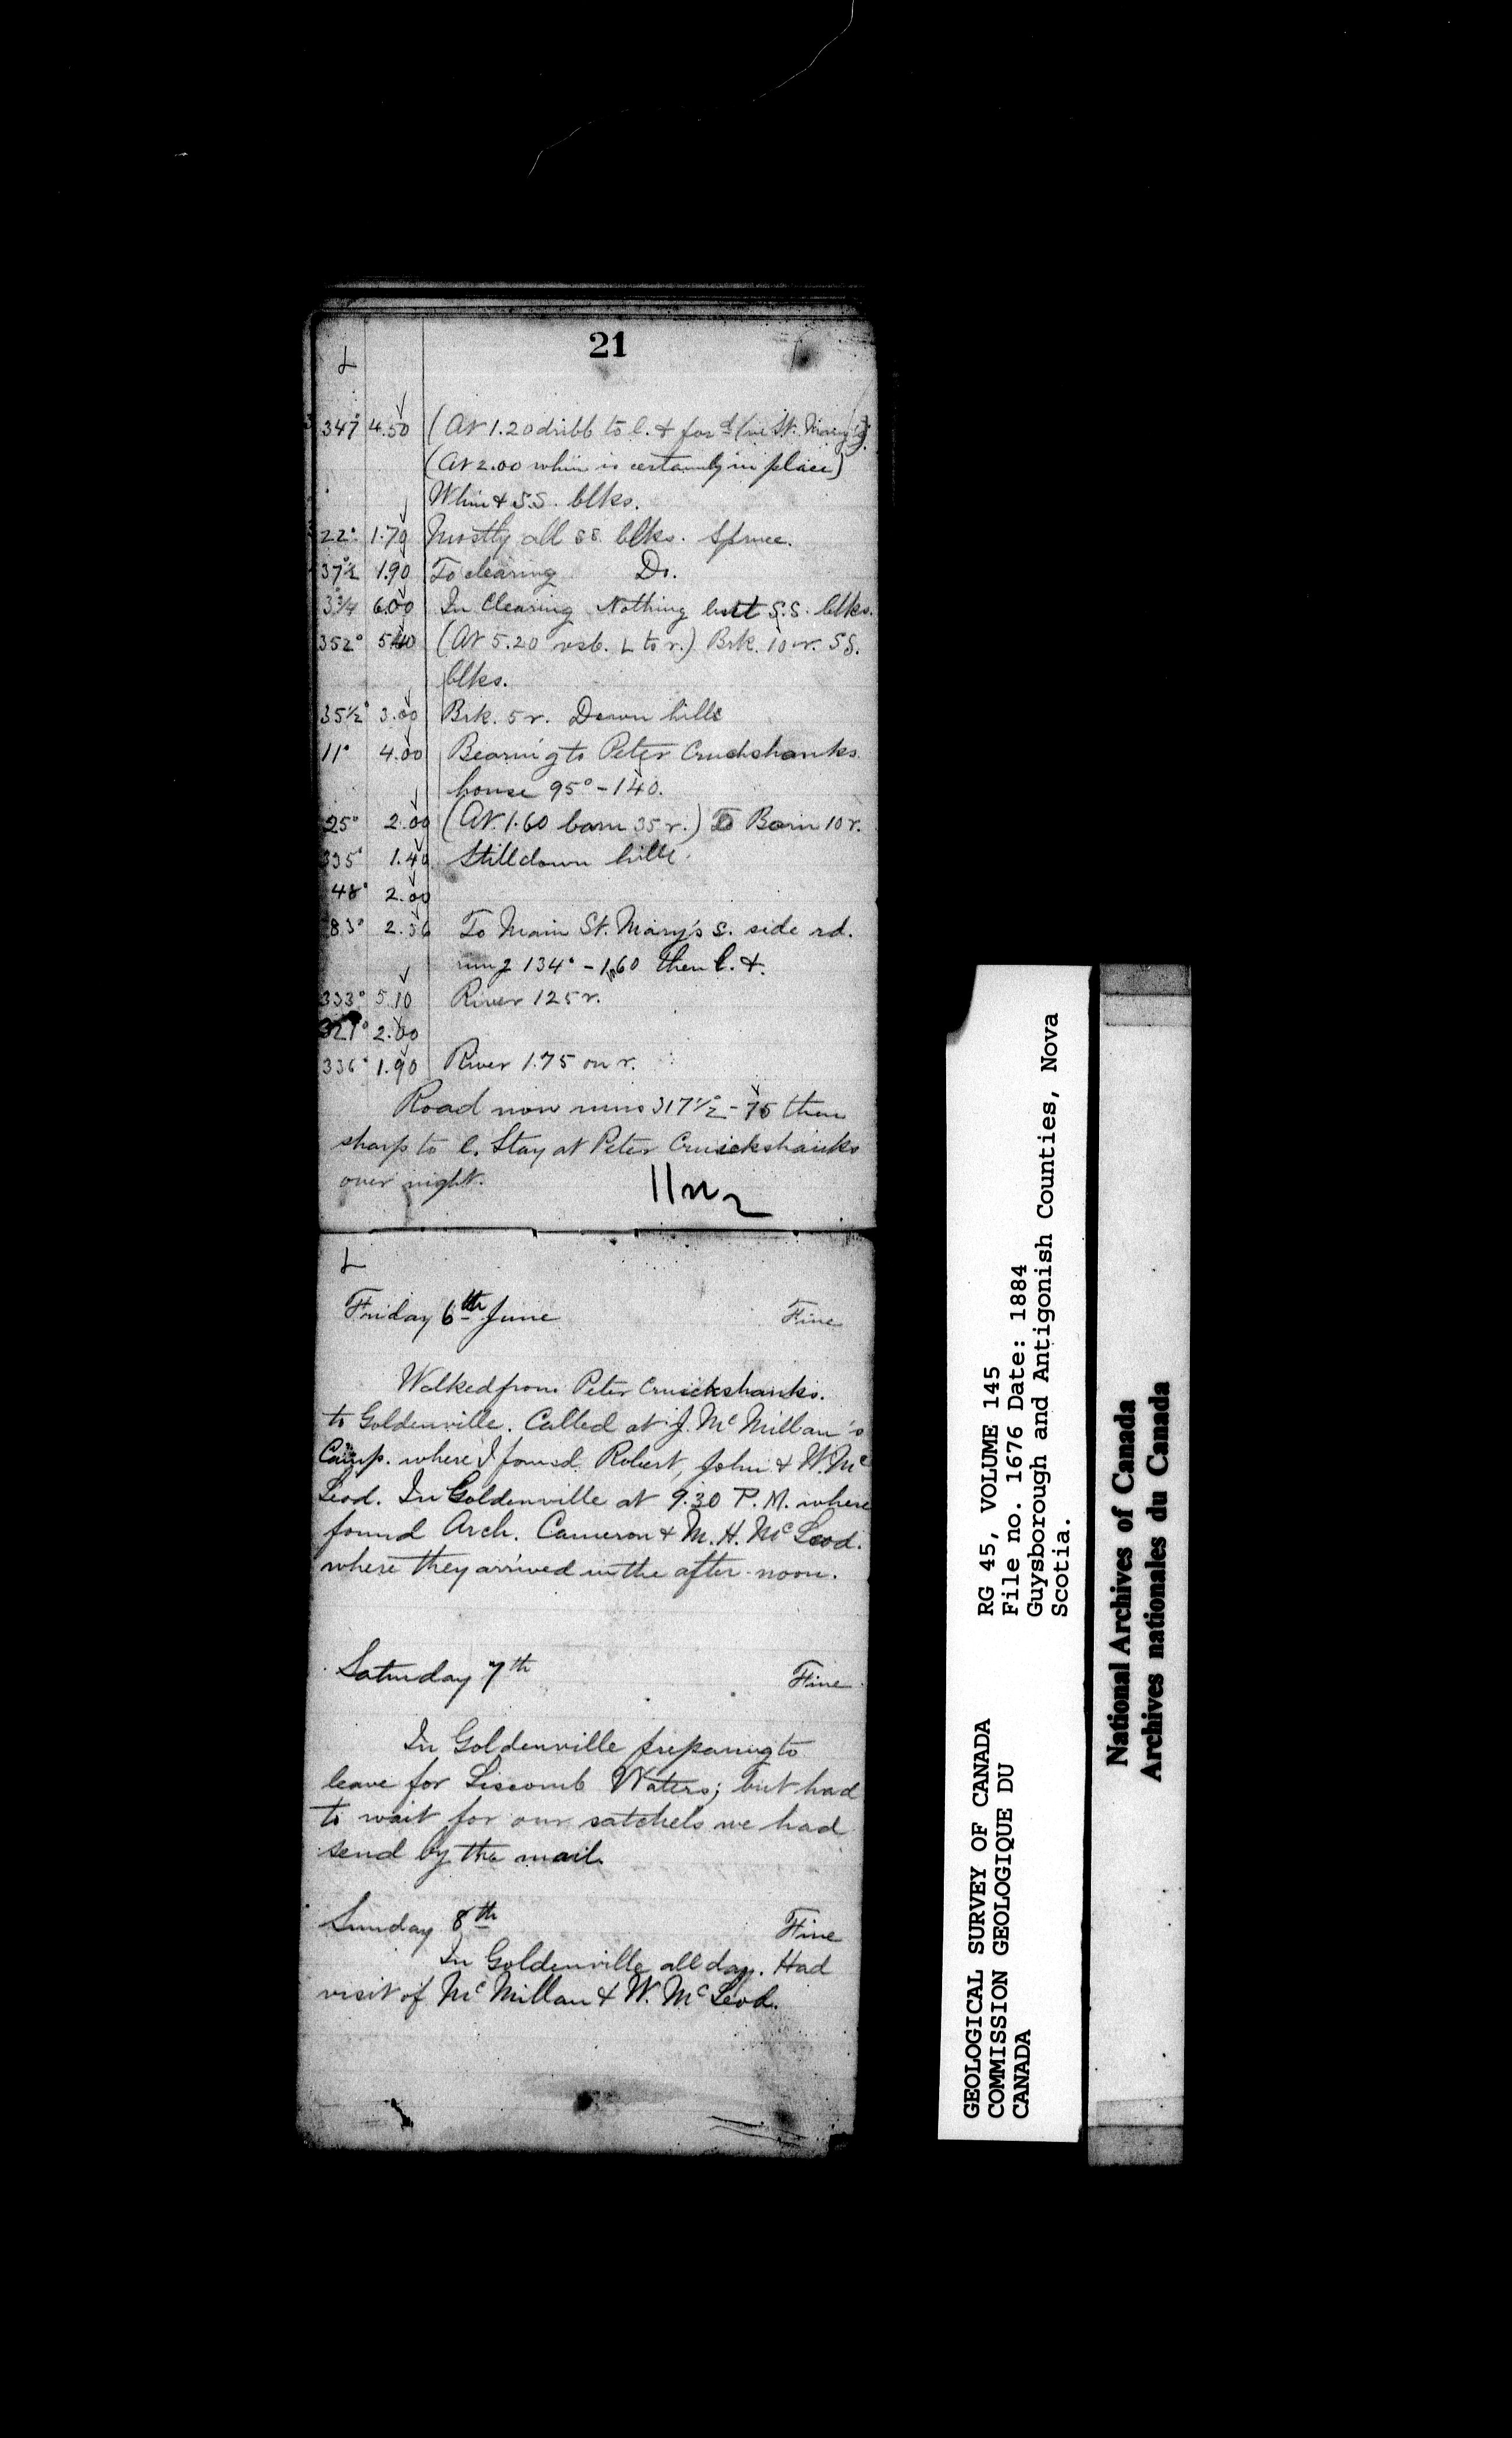 21
L
347° 4.50 (At 1.20 dribb to l. & for d (in St. Mary's).
(At 2.00 whin is certainly in place)
Whin & S.S. blks.
22° 1.70 Mostly all ss. blks. Spruce.
37½° 1.90 To clearing Do.
6.00 In Clearing Nothing but S.S. blks.
352° 5.40 (At 5.20 L to r.) Brk. 10 r. SS.
blks.
35½° 3.00 Brk. 5 r. Down hill
11° 4.00 Bearing to Peter Cruickshanks
house 95° - 140.
25° 2.00 (At 1.60 barn 35 r.) To Barn 10 r.
335° 1.40 Still down hill.
48° 2.00
83° 2.56 To Main St. Mary's s. side rd.
rung 134° - 1.60 then l. &.
333° 5.10 River 125 r.
321° 2.00
336° 1.90 River 1.75 on r.
Road now runs 317½° - 75 then
sharp to l. Stay at Peter Cruickshanks
over night.
L
Friday 6th June Fine
Walked from Peter Cruickshanks.
to Goldenville. Called at J. McMillan's
Camp. where I found Robert, John & W. Mc
Leod. In Goldenville at 9.30 P.M. where
found Arch. Cameron & M. H. McLeod.
where they arrived in the after-noon.
Saturday 7th Fine
In Goldenville preparing to
leave for Liscomb Waters; but had
to wait for our satchels we had
send by the mail.
Sunday 8th Fine
In Goldenville all day. Had
visit of McMillan & W. McLeod.
GEOLOGICAL SURVEY OF CANADA
COMMISSION GEOLOGIQUE DU
CANADA
RG 45, VOLUME 145
File no. 1676 Date: 1884
Guysborough and Antigonish Counties, Nova
Scotia.
National Archives of Canada
Archives nationales du Canada